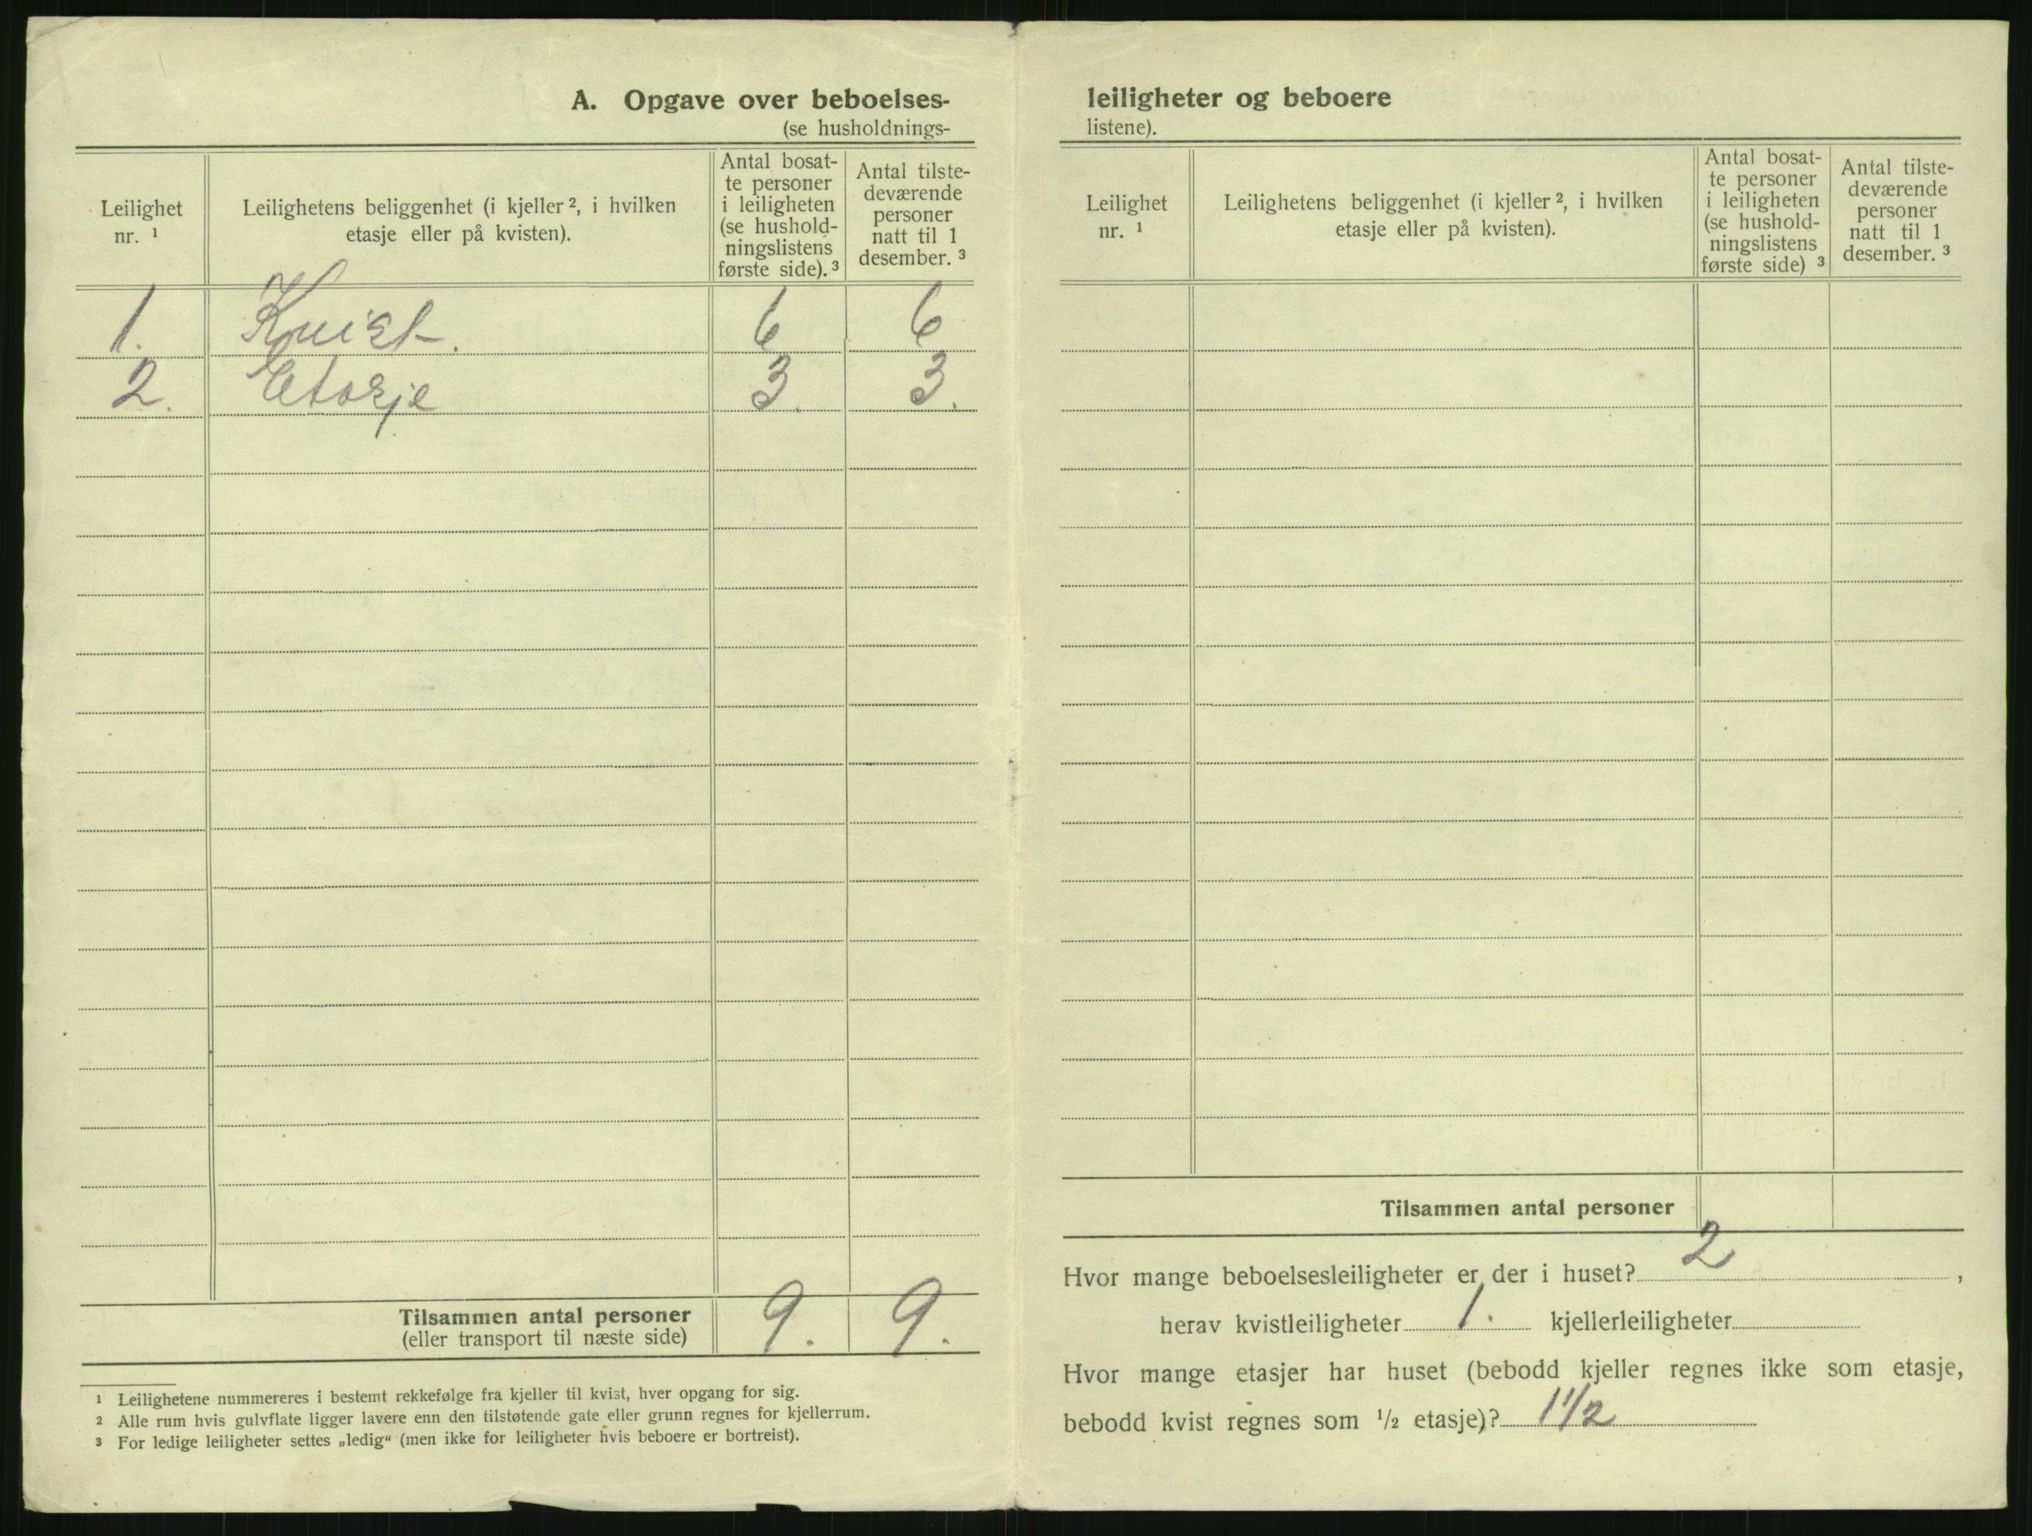 A. Opgave over beboelses-
(se husholdnings-
Leilighet nr. ¹
Leilighetens beliggenhet (i kjeller ², i hvilken
etasje eller på kvisten).
Antal bosat-
te personer
i leiligheten
(se hushold-
ningslistens
første side). ³
Antal tilste-
deværende
personer
natt til 1
desember. ³
1. Kvist. 6 6
2. Etasje 3. 3.
Tilsammen antal personer 9. 9.
(eller transport til næste side)
¹ Leilighetene nummereres i bestemt rekkefølge fra kjeller til kvist, hver opgang for sig.
² Alle rum hvis gulvflate ligger lavere enn den tilstøtende gate eller grunn regnes for kjellerrum.
³ For ledige leiligheter settes „ledig“ (men ikke for leiligheter hvis beboere er bortreist).
leiligheter og beboere
listene).
Leilighet
nr. ¹
Leilighetens beliggenhet (i kjeller ², i hvilken
etasje eller på kvisten).
Antal bosat-
te personer
i leiligheten
(se hushold-
ningslistens
første side) ³
Antal tilste-
deværende
personer
natt til 1
desember. ³
Tilsammen antal personer
Hvor mange beboelsesleiligheter er der i huset? 2 ,
herav kvistleiligheter 1. kjellerleiligheter
Hvor mange etasjer har huset (bebodd kjeller regnes ikke som etasje,
bebodd kvist regnes som ½ etasje)? 1½